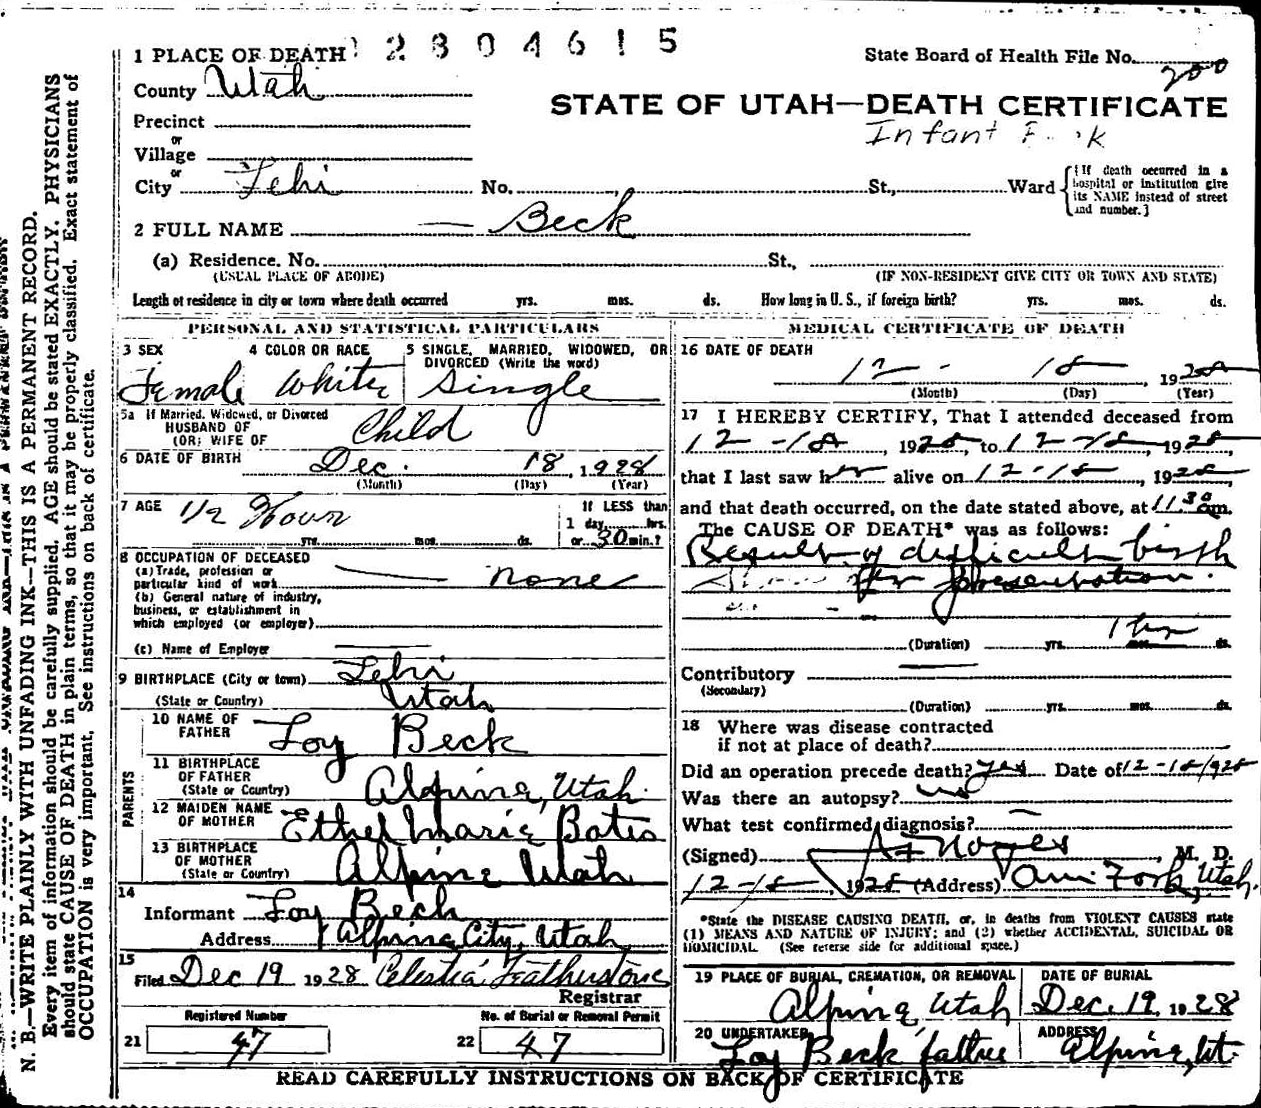 1 PLACE OF DEATH 2804615
State Board of Health File No. 200
County Utah
STATE OF UTAH—DEATH CERTIFICATE
Precinct
Infant
or
Village
or
City Lehi No. St., Ward
[If death occurred in a hospital or institution give its NAME instead of street and number.]
2 FULL NAME — Beck
(a) Residence. No. St.,
(USUAL PLACE OF ABODE) (IF NON-RESIDENT GIVE CITY OR TOWN AND STATE)
Length of residence in city or town where death occurred yrs. mos. ds. How long in U. S., if foreign birth? yrs. mos. ds.
PERSONAL AND STATISTICAL PARTICULARS
3 SEX 4 COLOR OR RACE 5 SINGLE, MARRIED, WIDOWED, OR
DIVORCED (Write the word)
Female White Single
5a If Married, Widowed, or Divorced
HUSBAND OF
(OR) WIFE OF Child
6 DATE OF BIRTH Dec. 18, 1928
(Month) (Day) (Year)
7 AGE 1/2 Hour
If LESS than
1 day, hrs.
yrs. mos. ds. or 30 min.?
8 OCCUPATION OF DECEASED
(a) Trade, profession or
particular kind of work — none
(b) General nature of industry,
business, or establishment in
which employed (or employer)
(c) Name of Employer
9 BIRTHPLACE (City or town) Lehi
(State or Country) Utah
PARENTS
10 NAME OF
FATHER Loy Beck
11 BIRTHPLACE
OF FATHER
(State or Country) Alpine, Utah.
12 MAIDEN NAME
OF MOTHER Ethel Marie Bates
13 BIRTHPLACE
OF MOTHER
(State or Country) Alpine Utah
14
Informant Loy Beck
Address Alpine City, Utah
15
Filed Dec 19 1928 Celestia Featherstone
Registrar
Registered Number No. of Burial or Removal Permit
21 47 22 47
MEDICAL CERTIFICATE OF DEATH
16 DATE OF DEATH
12 - 18 1928
(Month) (Day) (Year)
17 I HEREBY CERTIFY, That I attended deceased from
12-18, 1928, to 12-18, 1928
that I last saw her alive on 12-18, 1928
and that death occurred, on the date stated above, at 11.30 am.
The CAUSE OF DEATH* was as follows:
Result of difficult birth
presentation.
1 hr
(Duration) yrs. mos. ds.
Contributory
(Secondary)
(Duration) yrs. mos. ds.
18 Where was disease contracted
if not at place of death?
Did an operation precede death? yes Date of 12-18/928
Was there an autopsy? no
What test confirmed diagnosis? —
(Signed) Noyes, M. D.
12-18, 1928 (Address) Am Fork, Utah.
*State the DISEASE CAUSING DEATH, or, in deaths from VIOLENT CAUSES state
(1) MEANS AND NATURE OF INJURY; and (2) whether ACCIDENTAL, SUICIDAL OR
HOMICIDAL. (See reverse side for additional space.)
19 PLACE OF BURIAL, CREMATION, OR REMOVAL DATE OF BURIAL
Alpine Utah Dec. 19, 1928
20 UNDERTAKER ADDRESS
Loy Beck father Alpine, Ut.
READ CAREFULLY INSTRUCTIONS ON BACK OF CERTIFICATE
N. B.—WRITE PLAINLY WITH UNFADING INK—THIS IS A PERMANENT RECORD.
Every item of information should be carefully supplied. AGE should be stated EXACTLY. PHYSICIANS
should state CAUSE OF DEATH in plain terms, so that it may be properly classified. Exact statement of
OCCUPATION is very important. See instructions on back of certificate.